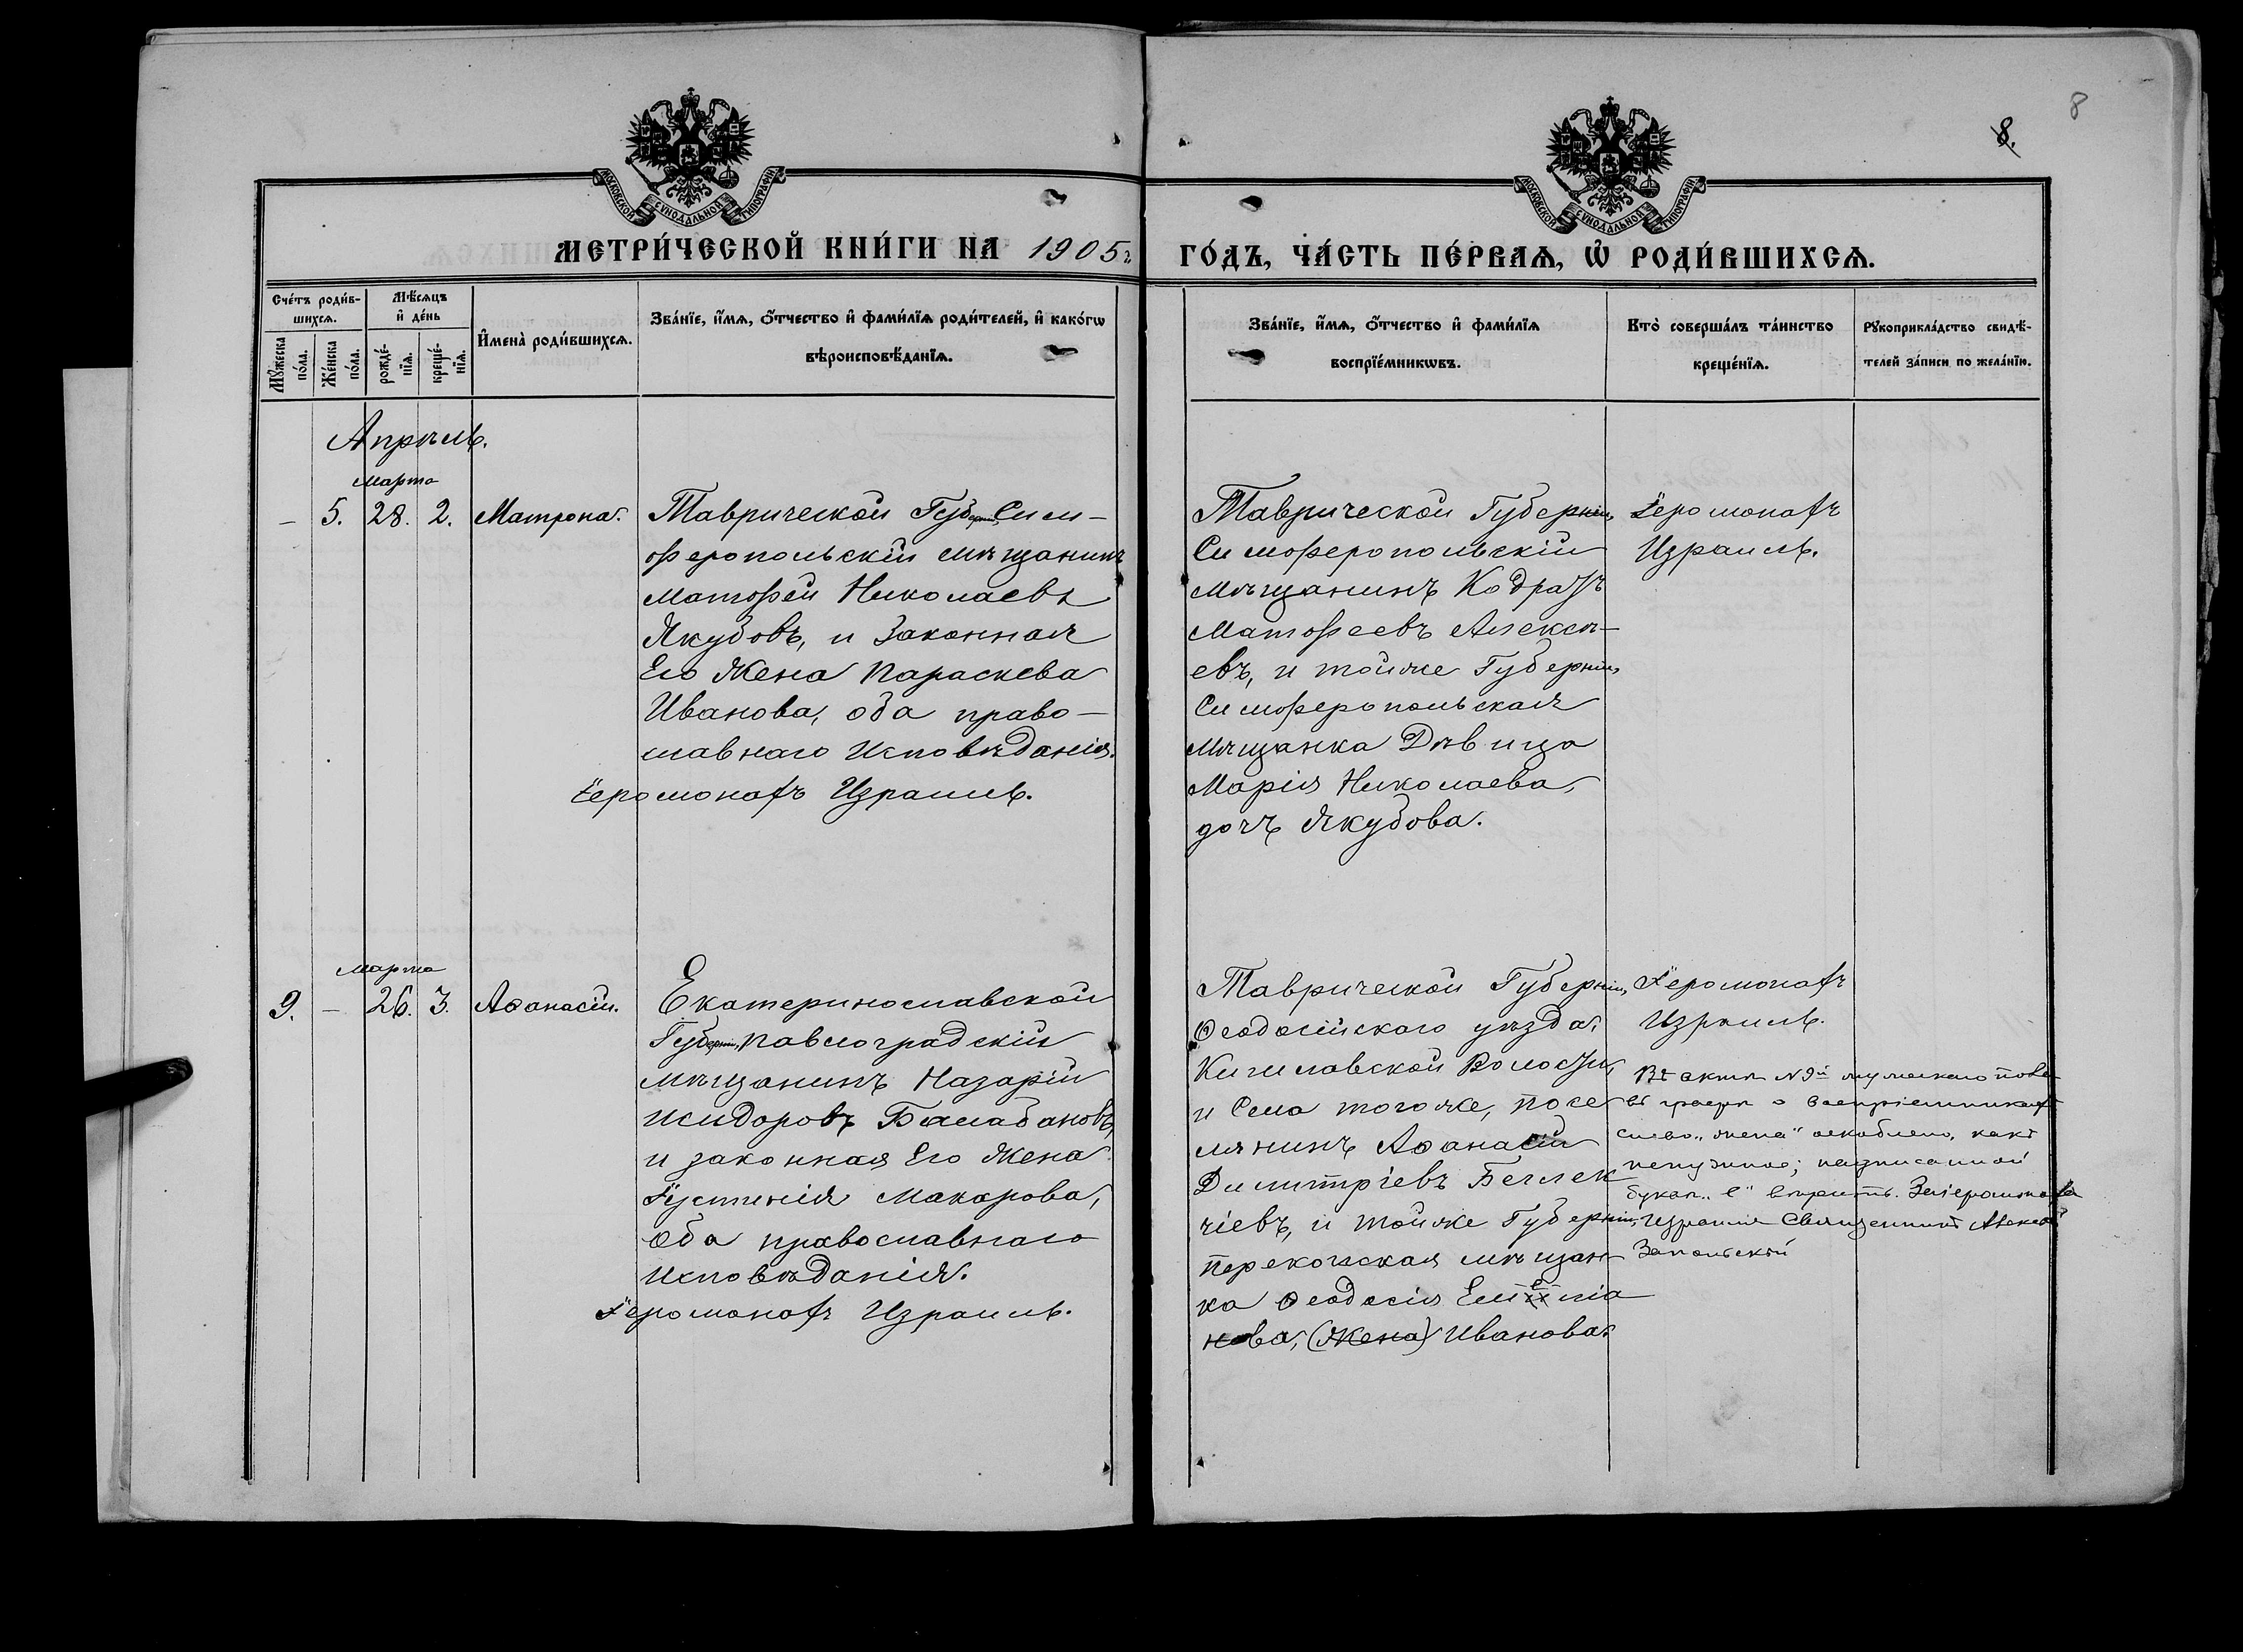 8
8.
МОСКОВСКОЙ СѴНОДАЛЬНОЙ ТИПОГРАФІИ
МОСКОВСКОЙ СѴНОДАЛЬНОЙ ТИПОГРАФІИ
МЕТРИ́ЧЕСКОЙ КНИ́ГИ НА 1905 г.
ГО́ДЪ, ЧА́СТЬ ПЕ́РВАѦ, Ѡ҆ РОДИ́ВШИХСѦ.
Сче́тъ роди́в-
шихсѧ.
Мꙋ́жеска по́ла.
Же́нска по́ла.
Мѣ́сѧцъ
и҆ де́нь
рожде́-
нїѧ.
креще́-
нїѧ.
И҆мена̀ роди́вшихсѧ.
Зва́нїе, и҆́мѧ, ѻ҆́тчество и҆ фами́лїѧ роди́телей, и҆ како́гѡ
вѣроисповѣ́данїѧ.
Зва́нїе, и҆́мѧ, ѻ҆́тчество и҆ фами́лїѧ
воспрїе́мникѡвъ.
Кто̀ соверша́лъ та́инство
креще́нїѧ.
Рꙋкоприкла́дство свидѣ́-
телей за́писи по жела́нїю.
Апрѣль.
Марта
– 5. 28. 2. Матрона.
Таврической Губерніи Сим-
феропольскій мѣщанинъ
Матфей Николаевъ
Якубовъ, и Законная
Его Жена Параскева
Иванова, оба право-
славнаго Исповѣданія.
Іеромонахъ Израиль.
Таврической Губерніи,
Симферопольскій
мѣщанинъ Кодратъ
Матфеевъ Алексѣ-
евъ, и тойже Губерніи,
Симферопольская
Мѣщанка Дѣвица
Марія Николаева,
дочь Якубова.
Іеромонахъ
Израиль.
Марта
9. – 26. 3. Аѳанасій.
Екатеринославской
Губерніи, Павлоградскій
мѣщанинъ Назарій
Исидоровъ Балабановъ,
и законная Его Жена
Іустинія Макарова,
Оба православнаго
Исповѣданія.
Іеромонахъ Израиль.
Таврической Губерніи,
Ѳеодосійскаго уѣзда,
Кишлавской Волости,
и Села тогоже, посе
лянинъ Аѳанасій
Димитріевъ Беглек
чіевъ, и тойже Губерніи,
Перекопская мѣщан
ка Ѳеодосія
нова, (Жена) Иванова.
Іеромонахъ
Израиль.
Въ актѣ №9й мужескаго пола
въ графѣ о воспріемникахъ
слово „жена" оскоблено, какъ
ненужное; надписанной
букѣ „е" вѣрить. За іеромонаха
Израиля Священникъ Алексѣй
Запольскій